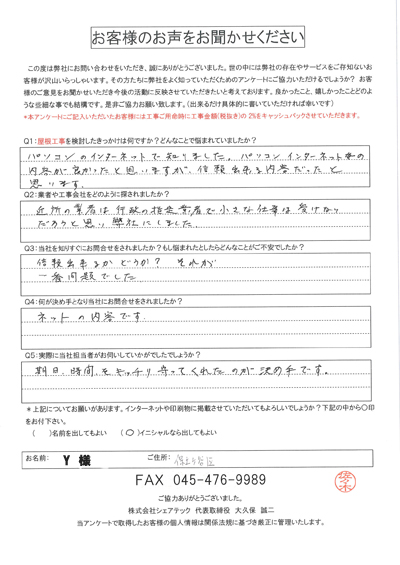 お客様のお声をお聞かせください
この度は弊社にお問い合わせをいただき、誠にありがとうございました。世の中には弊社の存在やサービスをご存知ないお
客様が沢山いらっしゃいます。その方たちに弊社をよく知っていただくためのアンケートにご協力いただけるでしょうか？ お客
様のご意見をお聞かせいただき今後の活動に反映させていただきたいと考えております。良かったこと、嬉しかったことどのよ
うな些細な事でも結構です。是非ご協力お願い致します。（出来るだけ具体的に書いていただければ幸いです）
*本アンケートにご記入いただいたお客様には工事ご用命時に工事金額(税抜き)の 2%をキャッシュバックさせていただきます。
Q1:屋根工事を検討したきっかけは何ですか？どんなことで悩まれていましたか？
パソコンのインターネットで知りました。パソコンインターネットの
内容が良かったと思いますが、信頼出来る内容だったと
思います。
Q2:業者や工事会社をどのように探されましたか？
近所の業者は行政の指定業者で小さな仕事は受けない
だろうと思い弊社にしました。
Q3:当社を知りすぐにお問合せをされましたか？もし悩まれたとしたらどんなことがご不安でしたか？
信頼出来るかどうか？ それが
一番問題でした
Q4:何が決め手となり当社にお問合せをされましたか？
ネットの内容です。
Q5:実際に当社担当者がお伺いしていかがでしたでしょうか？
期日、時間、をキッチリ守ってくれたのが決め手です。
＊上記についてお願いがあります。インターネットや印刷物に掲載させていただいてもよろしいでしょうか？下記の中から〇印
をお付下さい。
（　）名前を出してもよい （〇）イニシャルなら出してもよい
お名前: Y 様 ご住所: 保土ケ谷区
FAX 045-476-9989
ご協力ありがとうございました。
株式会社シェアテック 代表取締役 大久保 誠二
当アンケートで取得したお客様の個人情報は関係法規に基づき厳正に管理いたします。
佐々木